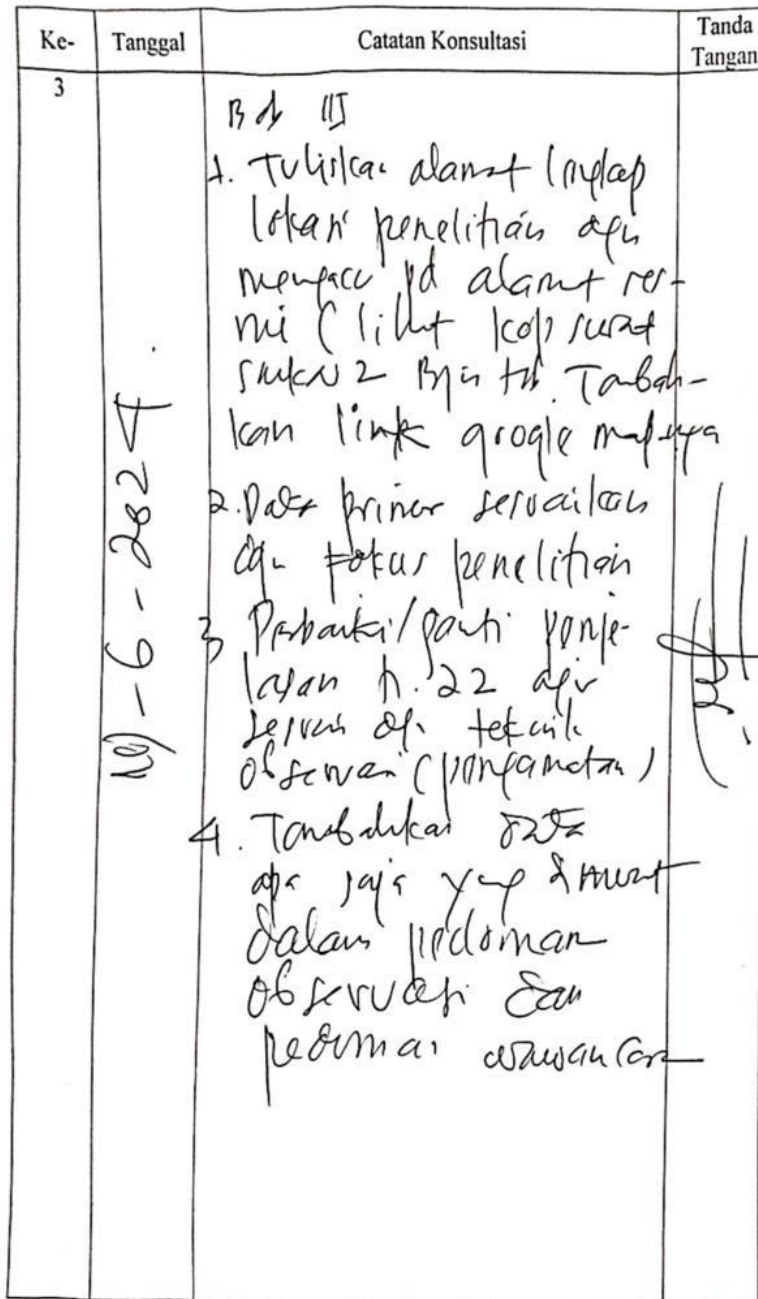 Ke- Tanggal Catatan Konsultasi Tanda Tangan
3
Bab III
1. Tuliskan alamat lengkap
lokasi penelitian dgn
mengacu pd alamat res-
mi (lihat kop surat
SMKN 2 Tambah-
kan link google mapnya
2. Data primer sesuaikan
dgn fokus penelitian
3 Perbaiki/ganti penje-
lasan h. 22 agar
sesuai dgn teknik
observasi (pengamatan)
4. Tambahkan data
apa saja yang dimuat
dalam pedoman
observasi dan
pedoman wawancara
-6-2024